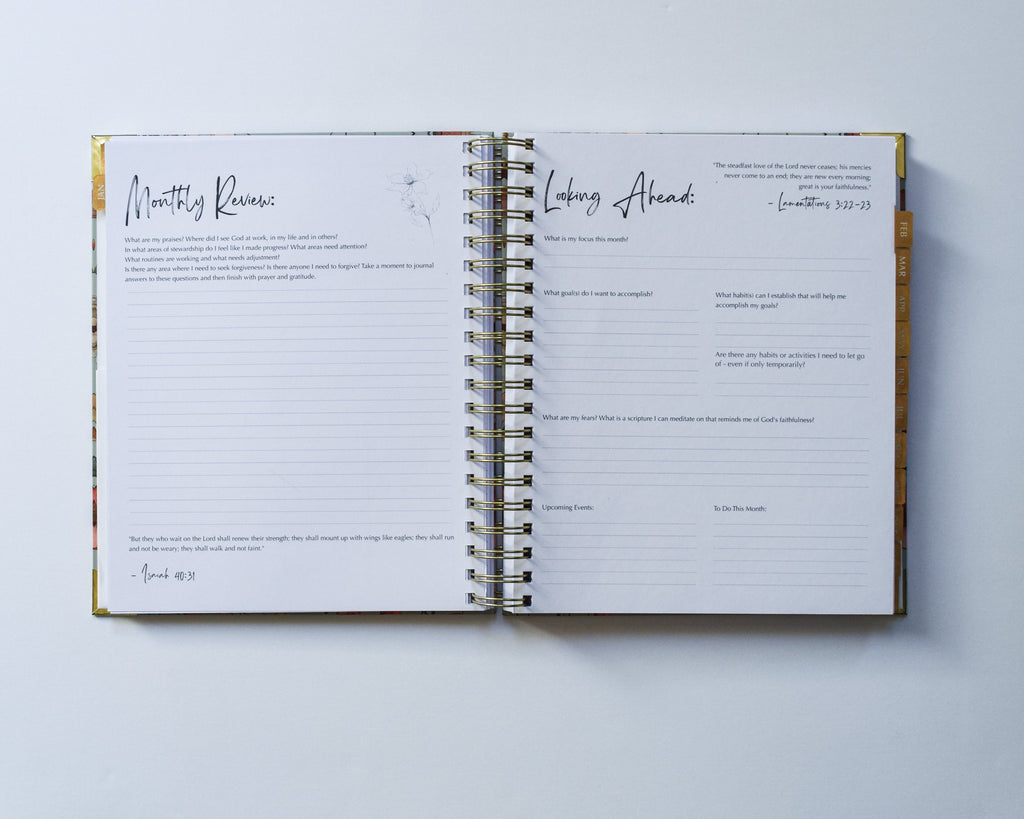 JAN
Monthly Review:
What are my praises? Where did I see God at work, in my life and in others?
In what areas of stewardship do I feel like I made progress? What areas need attention?
What routines are working and what needs adjustment?
Is there any area where I need to seek forgiveness? Is there anyone I need to forgive? Take a moment to journal
answers to these questions and then finish with prayer and gratitude.
"But they who wait on the Lord shall renew their strength; they shall mount up with wings like eagles; they shall run
and not be weary; they shall walk and not faint."
- Isaiah 40:31
Looking Ahead:
"The steadfast love of the Lord never ceases; his mercies
never come to an end; they are new every morning;
great is your faithfulness."
- Lamentations 3:22-23
What is my focus this month?
What goal(s) do I want to accomplish?
What habit(s) can I establish that will help me
accomplish my goals?
Are there any habits or activities I need to let go
of - even if only temporarily?
What are my fears? What is a scripture I can meditate on that reminds me of God's faithfulness?
Upcoming Events:
To Do This Month:
FEB
MAR
APR
JUN